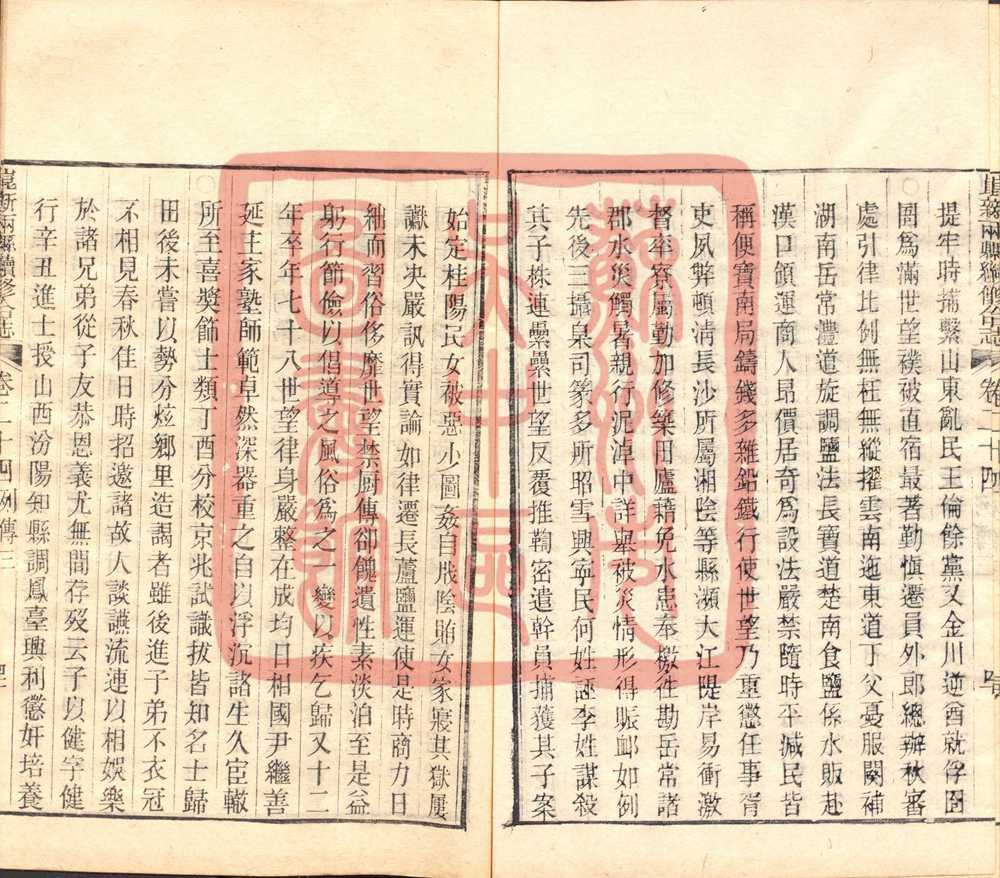 崑新兩縣續修合志 卷二十四
提牢時捕繫山東亂民王倫餘黨又金川逆酋就俘囹
圄為滿世望襆被直宿最著勤慎遷員外郎總辦秋審
處引律比例無枉無縱擢雲南迤東道丁父憂服闋補
湖南岳常澧道旋調鹽法長寶道楚南食鹽係水販赴
漢口領運商人昂價居奇爲設法嚴禁隨時平減民皆
稱便寶南局鑄錢多雜鉛鐵行使世望乃重懲任事胥
吏夙弊頓清長沙所屬湘陰等縣瀕大江隄岸易衝激
督率寮屬勤加修築田廬藉免水患奉檄往勘岳常諸
郡水災觸暑親行泥淖中詳舉被災情形得賑䘏如例
先後三攝臬司篆多所昭雪興寧民何姓誣李姓謀殺
其子株連纍纍世望反覆推鞫密遣幹員捕獲其子案
始定桂陽民女被惡少圖姦自戕陰賄女家寢其獄屢
讞未決嚴訊得實論如律遷長蘆鹽運使是時商力日
絀而習俗侈靡世望禁厨傳卻餽遺性素淡泊至是益
躬行節儉以倡導之風俗爲之一變以疾乞歸又十二
年卒年七十八世望律身嚴整在成均日相國尹繼善
延主家塾師範卓然深器重之自以浮沉諸生久宦轍
所至喜獎篩士類丁酉分校京兆試識拔皆知名士歸
田後未嘗以勢分炫鄉里造謁者雖後進子弟不衣冠
不相見春秋佳日時招邀諸故人談讌流連以相娛樂
於諸兄弟從子友恭恩義尤無間存歿云子以健字健
行辛丑進士授山西汾陽知縣調鳳臺興利懲奸培養
崑新兩縣續修合志 卷二十四 列傳三